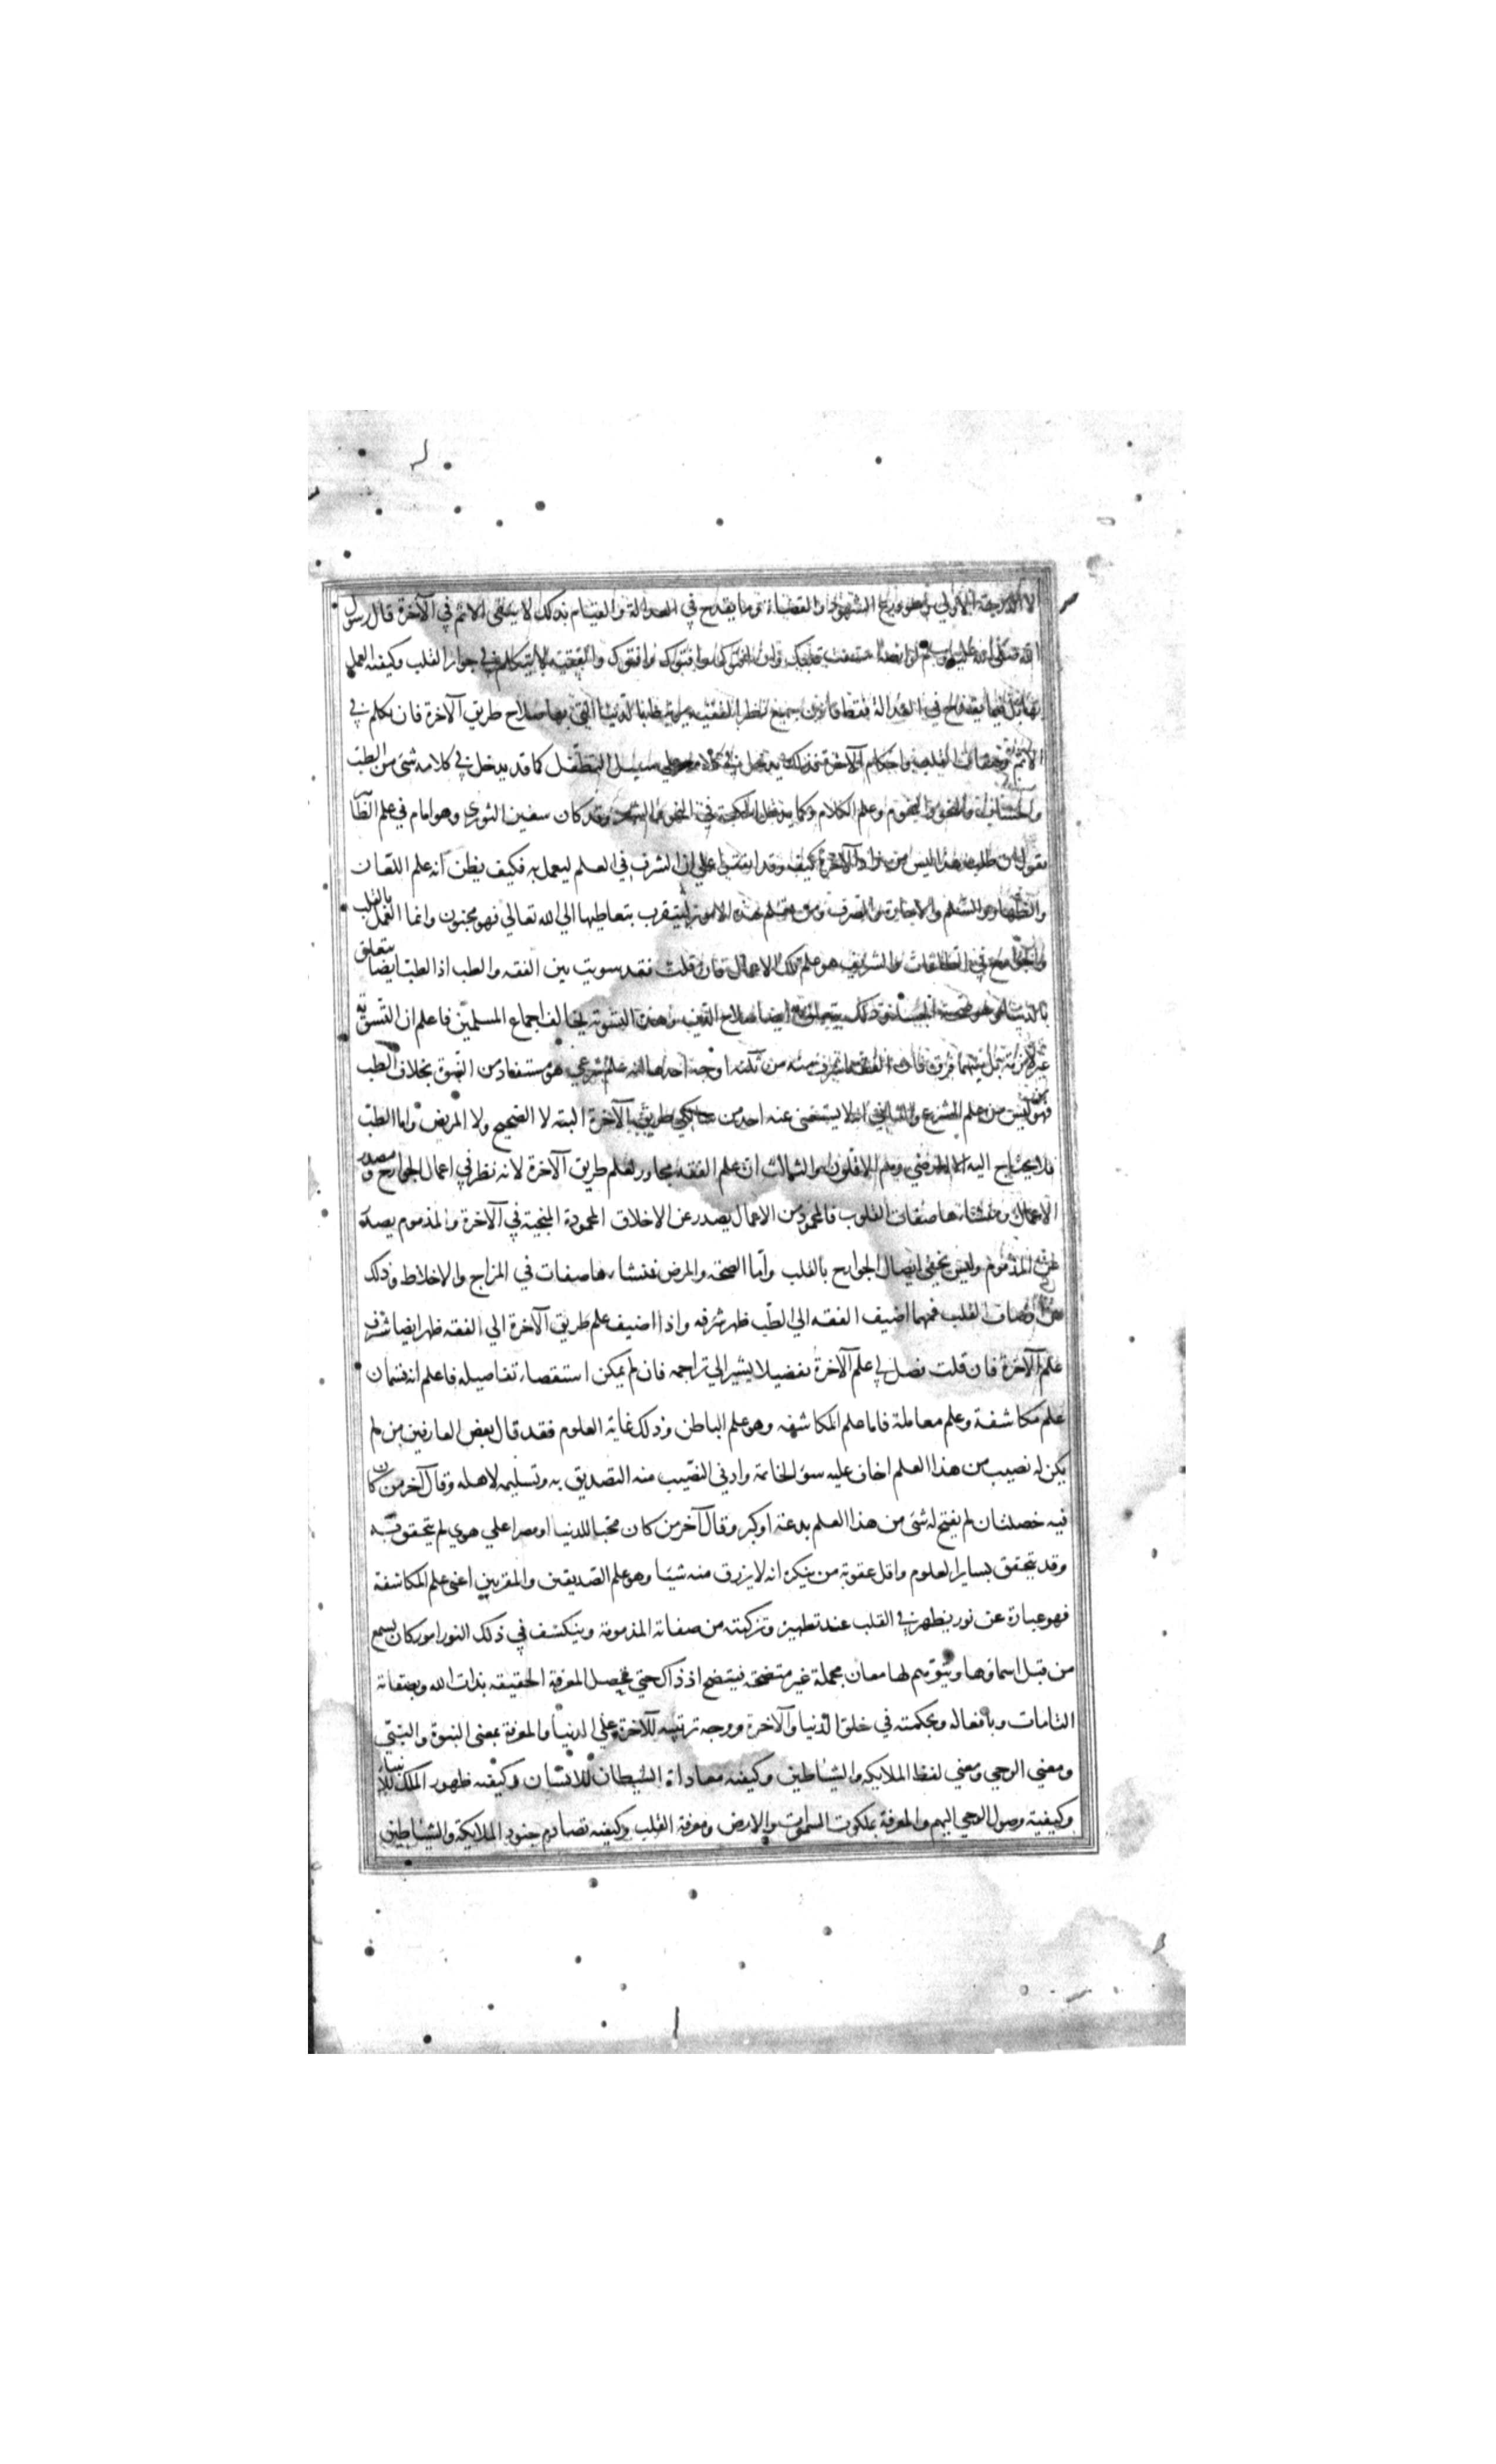 الا الدرجة الاولي وهو ورع الشهود والقضاة وما يقدح في العدالة والقيام بذلك لا ينفي الاثم في الآخرة قال رسول
الله صلى الله عليه وسلم لوابصة استفت قلبك وان افتوك وافتوك وافتوك والفقيه لا يتكلم في حواز القلب وكيفية العمل
بها بل فيما يقدح في العدالة فقط فاذن جميع نظر الفقيه مرتبط بالدنيا التي بها صلاح طريق الآخرة فان تكلم في
الاثم وصفات القلب واحكام الآخرة فذلك يدخل في كلامه علي سبيل التطفل كما قد يدخل في كلامه شئ من الطب
والحساب والنجوم وعلم الكلام وكما يدخل الحكمة في النحو والشعر وقد كان سفين الثوري وهو امام في علم الظا
يقول ان طلب هذا ليس من زاد الآخرة كيف وقد اتفقوا علي ان الشرف في العلم ليعمل به فكيف يظن انه علم اللعان
والظهار والسلم والاجارة والصرف ومن تعلم هذه الامور ليتقرب بتعاطيها الي الله تعالي فهو مجنون وانما العمل بالقلب
والجوارح في الطاعات والشريف هو علم تلك الاعمال فان قلت فقد سويت بين الفقه والطب اذ الطب ايضا يتعلق
بالدنيا وهو صحة الجسد وذلك يتعلق به ايضا صلاح الدين وهذه التسوية يخالف اجماع المسلمين فاعلم ان التسوية
غير لازمة بل بينهما فرق فان الفقه اشرف منه من ثلثة اوجه احدها انه علم شرعي هو مستفاد من النبوة بخلاف الطب
فهو ليس من علم الشرع والثاني انه لا يستغني عنه احد من سالكي طريق الآخرة البتة لا الصحيح ولا المريض واما الطب
فلا يحتاج اليه الا المرضي وهم الاقلون والثالث ان علم الفقه مجاور لعلم طريق الآخرة لانه نظر في اعمال الجوارح ومصدر
الاعمال ومنشاءها صفات القلوب فالمحمود من الاعمال يصدر عن الاخلاق المحمودة المنجية في الآخرة والمذموم يصدر
عن المذموم وليس يخفي اتصال الجوارح بالقلب واما الصحة والمرض فمنشاءها صفات في المزاج والاخلاط وذلك
من اوصاف القلب فمهما اضيف الفقه الي الطب ظهر شرفه واذا اضيف علم طريق الآخرة الي الفقه ظهر ايضا شرف
علم الآخرة فان قلت فصل لي علم الآخرة تفصيلا يشير الي تراجمه فان لم يمكن استقصاء تفاصيله فاعلم انه قسمان
علم مكاشفة وعلم معاملة فاما علم المكاشفه وهو علم الباطن وذلك غاية العلوم فقد قال بعض العارفين من لم
يكن له نصيب من هذا العلم اخاف عليه سؤ الخاتمة وادني النصيب منه التصديق به وتسليمه لاهله وقال آخر من كان
فيه خصلتان لم يفتح له شئ من هذا العلم بدعة او كبر وقال آخر من كان محبا للدنيا او مصرا علي هوي لم يتحقق به
وقد يتحقق بساير العلوم واقل عقوبة من ينكره انه لا يرزق منه شيئا وهو علم الصديقين والمقربين اعني علم المكاشفة
فهو عبارة عن نور يظهر في القلب عند تطهيره وتزكيته من صفاته المذمومة وينكشف في ذلك النور امور كان يسمع
من قبل اسماؤها ويتوهم لها معان مجملة غير متضحة فيتضح اذ ذاك حتي يحصل المعرفة الحقيقيه بذات الله وبصفاته
التامات وبافعاله وبحكمته في خلق الدنيا والآخرة ووجه ترتيبه للآخرة علي الدنيا والمعرفة بمعني النبوة والنبي
ومعني الوحي ومعني لفظ الملايكه والشياطين وكيفيه معاداة الشيطان للانسان وكيفيه ظهور الملك للانبياء
وكيفية وصول الوحي اليهم والمعرفة بملكوت السموات والارض ومعرفة القلب وكيفيه تصادم جنود الملايكة والشياطين